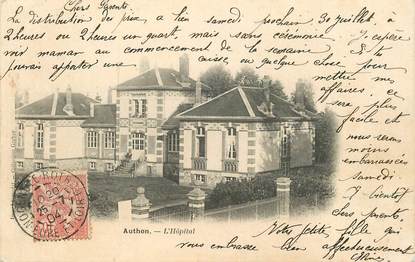 Chers Parents.
La distribution des prix a lieu samedi prochain 30 juillet. à
2 heures ou 2 heures un quart, mais sans cérémonie. J'espère
voir maman au commencement de la semaine. Et tu
pourais apporter une caisse ou quelque chose pour
mettre mes
affaires. Ce
sera plus
facile et
nous serons
moins
embarrassés
samedi.
A bientôt
Chers parents.
Votre petite fille qui
vous embrasse bien affectueusement
Authon. — L'Hôpital
EURE ET LOIR
04